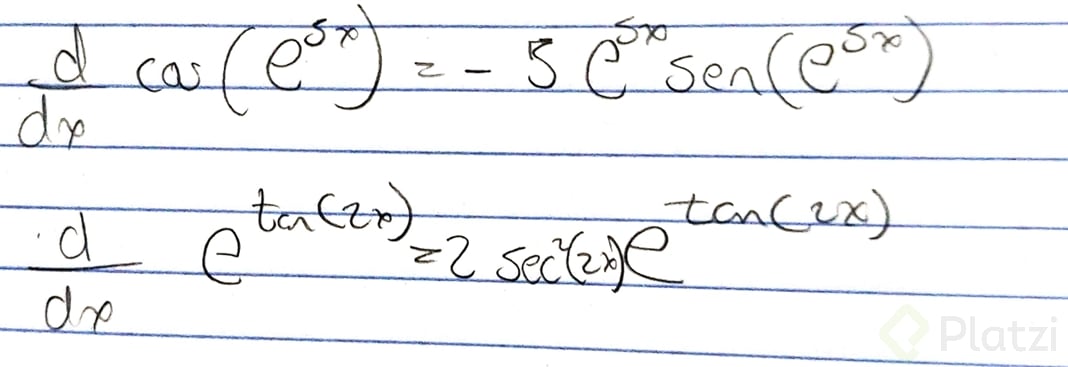 d/dx cos(e^{5x}) = - 5 e^{5x} sen(e^{5x})
d/dx e^{tan(2x)} = 2 sec²(2x) e^{tan(2x)}
Platzi